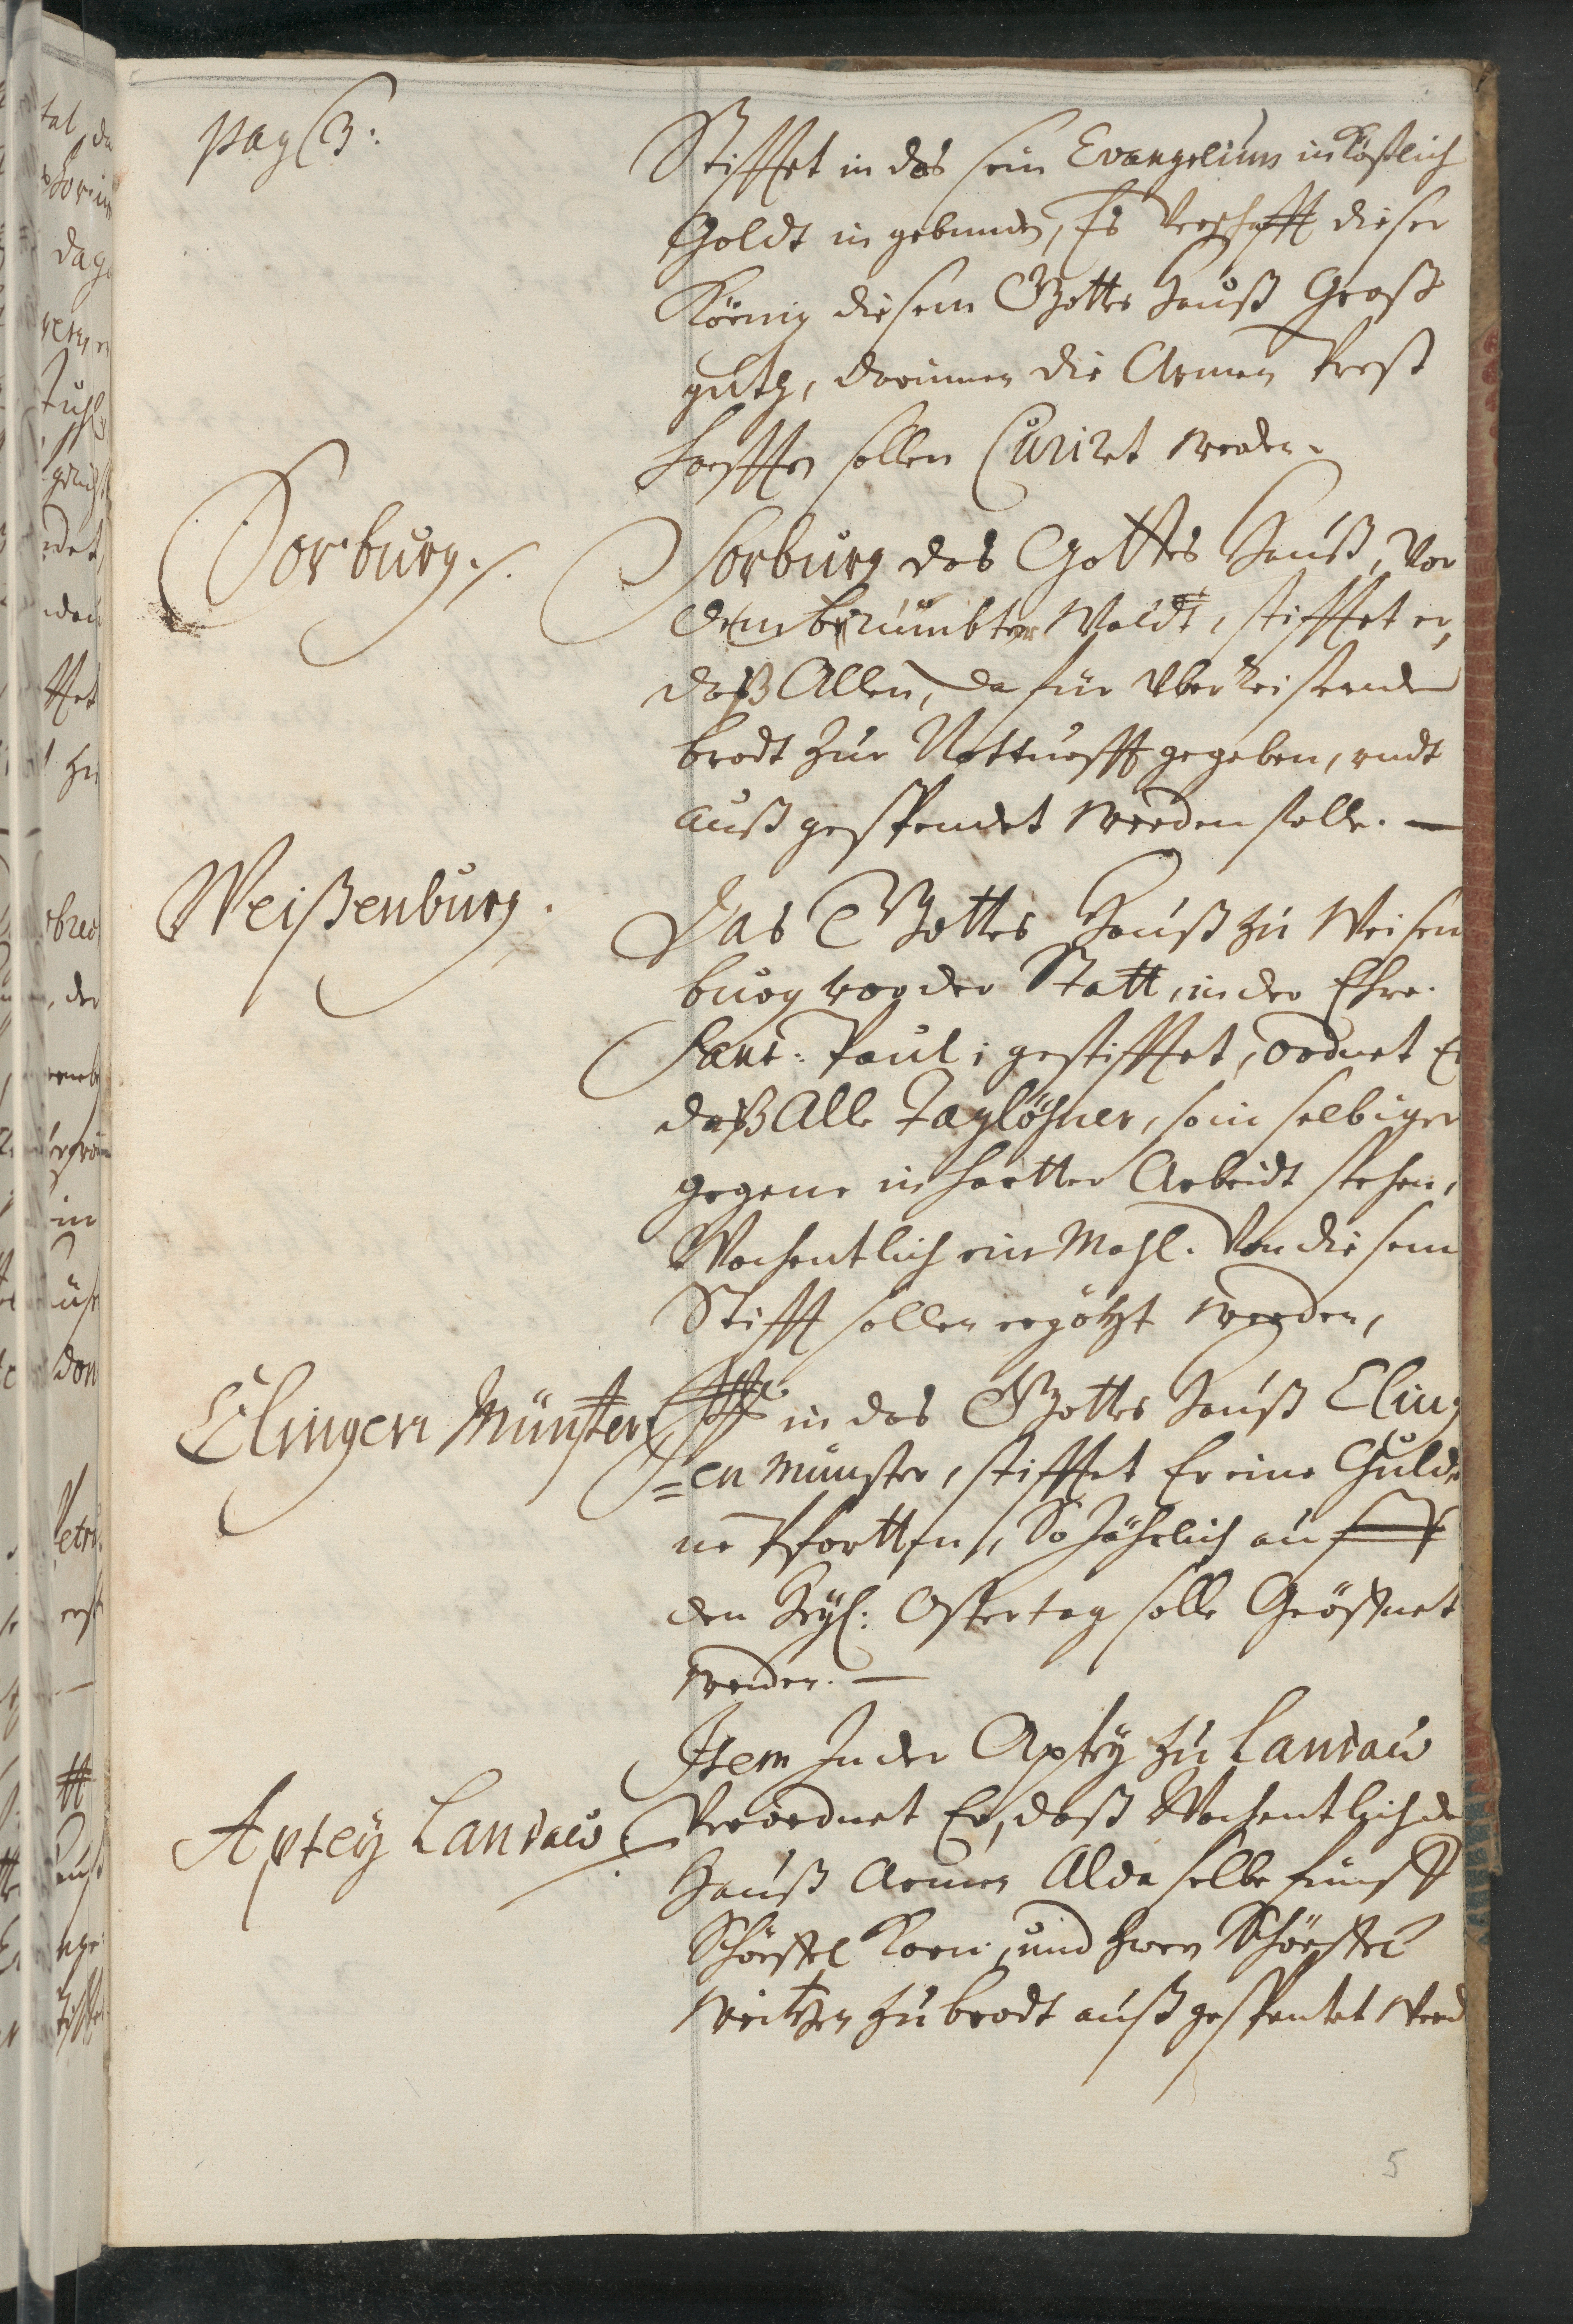 pag 3:
Stifftet in das sein Evangelium in köstlich
Goldt in gebunden, Es Verschafft dieser
Köenig diesem Gottes Hauß Groß
guth, darinnen die Armen Prest
hafften sollen Curiret werden.
Sorburg.
Sorburg das Gottes Hauß, Vor
dem berümbten Waldt, stifftet er,
daß Allen, da für Vber Reisende
brodt zur Notturfft gegeben, vndt
auß gespendet werden solle. —
Weißenburg.
Das Gottes Hauß zu Weisen
burg vor der Statt, in der Ehre.
Sanct. Pauli gestifftet, ordnet Er
daß Alle Taglöhner, so in selbiger
gegene in hartter Arbeidt stehen,
Wochentlich ein Mahl. Von diesem
Stifft sollen ergötzt werden,
Clingen Münster
in das Gottes Hauß Cling
=en münster, stifftet Er eine Gulde
ne Pfortten, So Jährlich auf
den Heyl: Ostertag solle Geöffnet
werden. —
Item In der Aptey zu Landaw
Aptey Landaw.
Verordnet Er, daß Wochentlich de
Hauß Armen Alda selbe fünff
Schöeffel Korn, und zwen Schöeffel
weitzen zu brodt auß gespentet werd
5